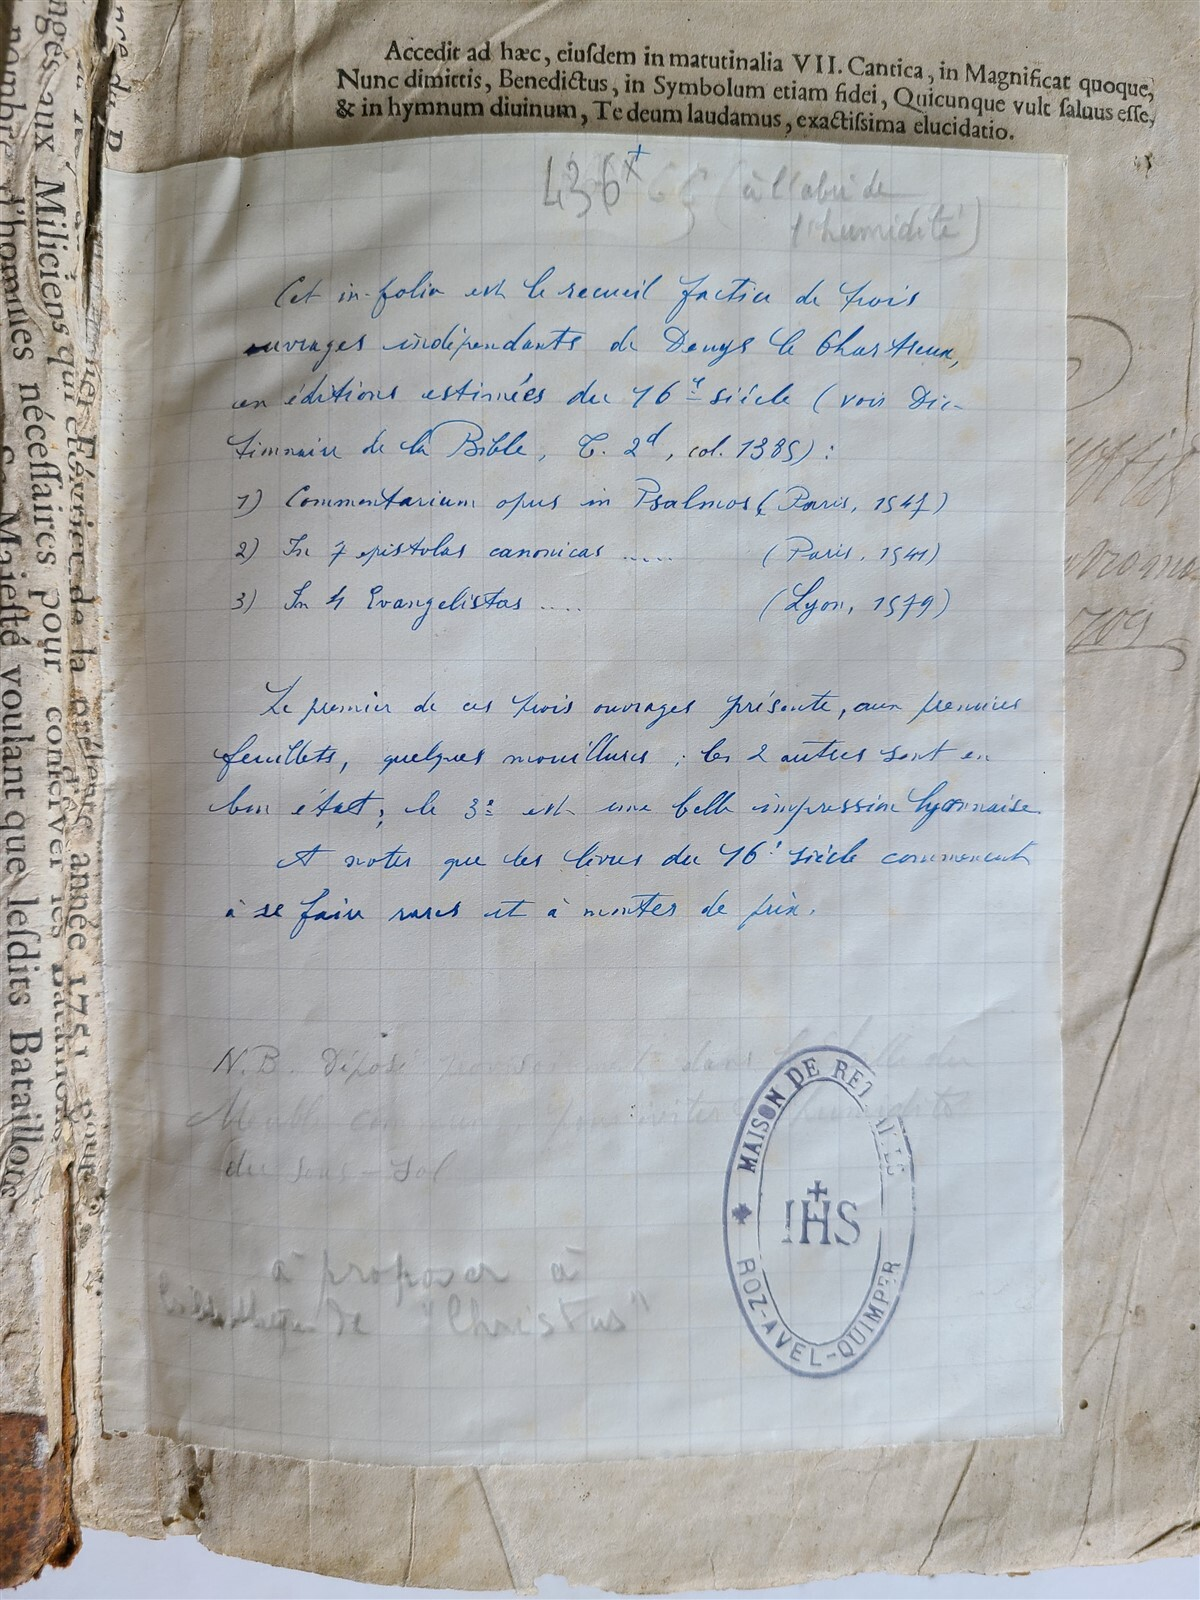 Accedit ad hæc, eiuſdem in matutinalia VII. Cantica, in Magnificat quoque,
Nunc dimittis, Benedictus, in Symbolum etiam fidei, Quicunque vult ſaluus eſſe,
& in hymnum diuinum, Te deum laudamus, exactiſsima elucidatio.
436 x
(à l'abri de
l'humidité)
Cet in-folio est le recueil factice de trois
ouvrages indépendants de Denys le Chartreux,
en éditions estimées du 16e siècle (voir Dic-
tionnaire de la Bible, T. 2d, col. 1385) :
1) Commentarium opus in Psalmos (Paris, 1547)
2) In 7 epistolas canonicas ..... (Paris, 1541)
3) In 4 Evangelistas .... (Lyon, 1579)
Le premier de ces trois ouvrages présente, aux premiers
feuillets, quelques mouillures ; les 2 autres sont en
bon état ; le 3e est une belle impression lyonnaise.
A noter que les livres du 16e siècle commencent
à se faire rares et à monter de prix.
N.B. Déposé provisoirement dans la salle du
pour éviter l'humidité
du sous-sol
à proposer à
de "Christus"
MAISON DE RETRAITES
IHS
ROZ-AVEL-QUIMPER
709
nombre d'hommes néceſſaires pour conſerver les Bataillons
Sa Majeſté voulant que leſdits Bataillons
de la préſente année 1751 pour
aux Miliciens qui